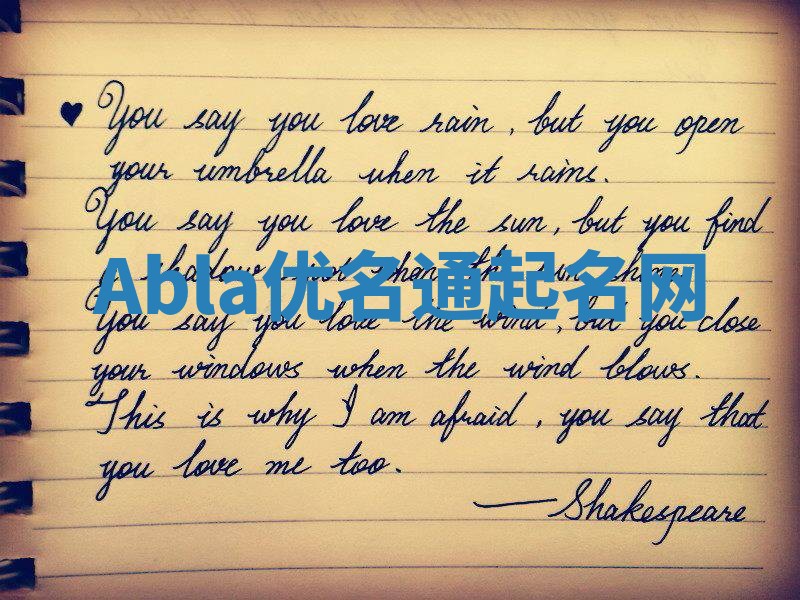 ♥ You say you love rain, but you open
your umbrella when it rains.
You say you love the sun, but you find
a shadow spot when the sun shines.
Abla优名通起名网
You say you love the wind, but you close
your windows when the wind blows.
This is why I am afraid, you say that
you love me too.
—Shakespeare